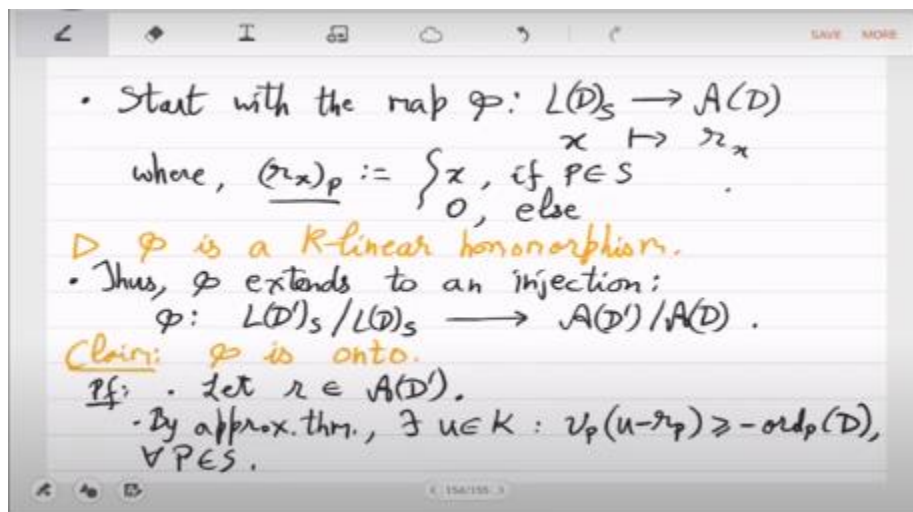 SAVE MORE
• Start with the map φ: L(D)_S → A(D)
x ↦ r_x
where, (r_x)_P := { x, if P∈S
0, else
▷ φ is a k-linear homomorphism.
• Thus, φ extends to an injection:
φ: L(D')_S / L(D)_S → A(D') / A(D).
Claim: φ is onto.
Pf: • Let r ∈ A(D').
• By approx. thm., ∃ u∈K : v_P(u-r_P) ⩾ -ord_P(D),
∀ P∈S.
154/155